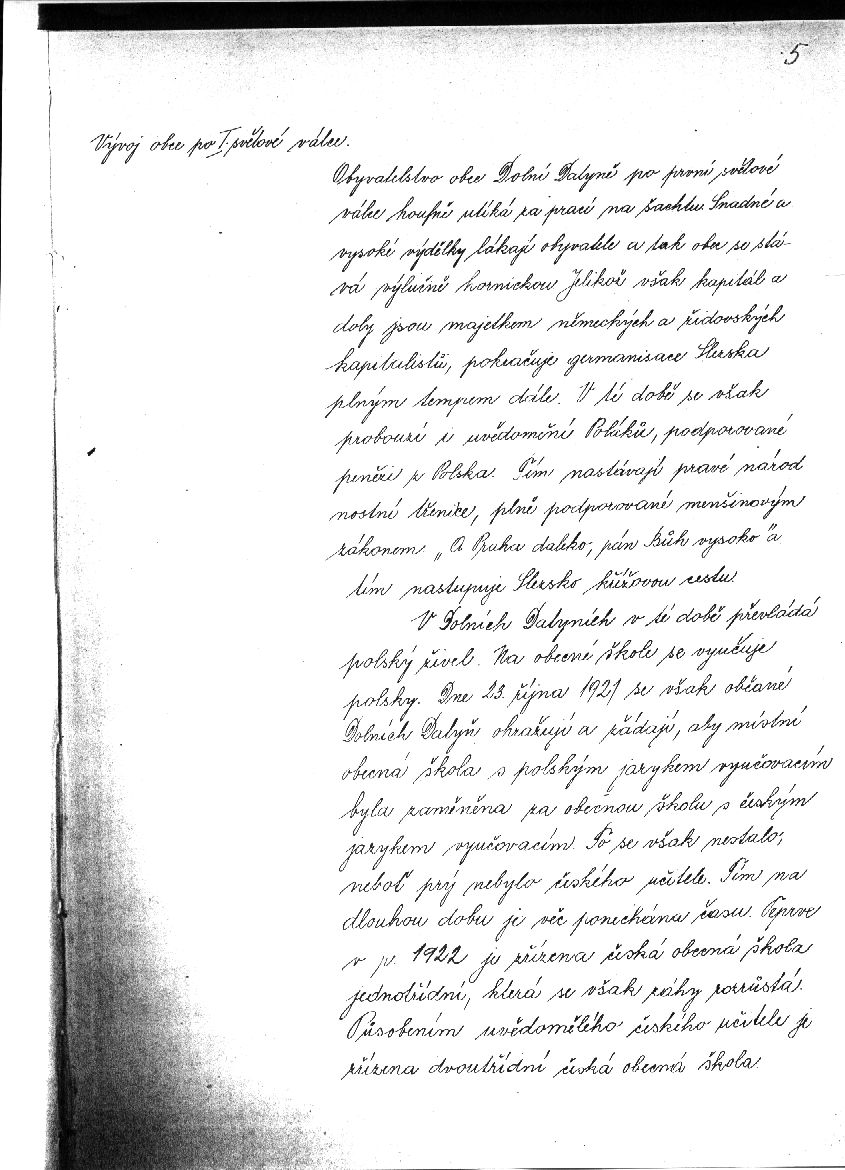 5
Vývoj obce po I. světové válce.
Obyvatelstvo obce Dolní Datyně po první světové
válce houfně utíká za prací na šachtu. Snadné a
vysoké výdělky lákají obyvatele a tak obec se stá-
vá výlučně hornickou. Jelikož však kapitál a
doly jsou majetkem německých a židovských
kapitalistů, pokračuje germanisace Slezska
plným tempem dále. V té době se však
probouzí i uvědomění Poláků, podporované
penězi z Polska. Tím nastávají pravé národ
nostní třenice, plně podporované menšinovým
zákonem. „A Praha daleko, pán Bůh vysoko" a
tím nastupuje Slezsko křížovou cestu.
V Dolních Datyních v té době převládá
polský živel. Na obecné škole se vyučuje
polsky. Dne 23. října 1921 se však občané
Dolních Datyň ohražují a žádají, aby místní
obecná škola s polským jazykem vyučovacím
byla zaměněna za obecnou školu s českým
jazykem vyučovacím. To se však nestalo,
neboť prý nebylo českého učitele. Tím na
dlouhou dobu je věc ponechána času. Teprve
v r. 1922 je zřízena česká obecná škola
jednotřídní, která se však záhy rozrůstá.
Působením uvědomělého českého učitele je
zřízena dvoutřídní česká obecná škola.